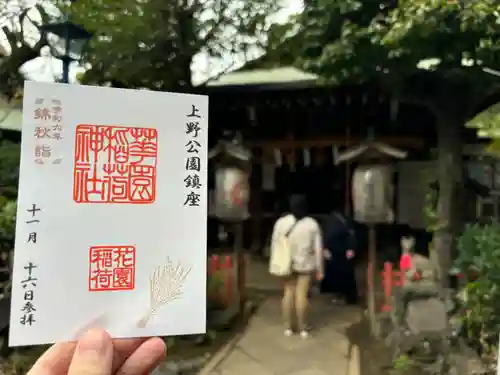 上野公園鎮座
華園
稲荷
神社
花園
稲荷
令和六年
錦秋詣
十一月
十六日参拝